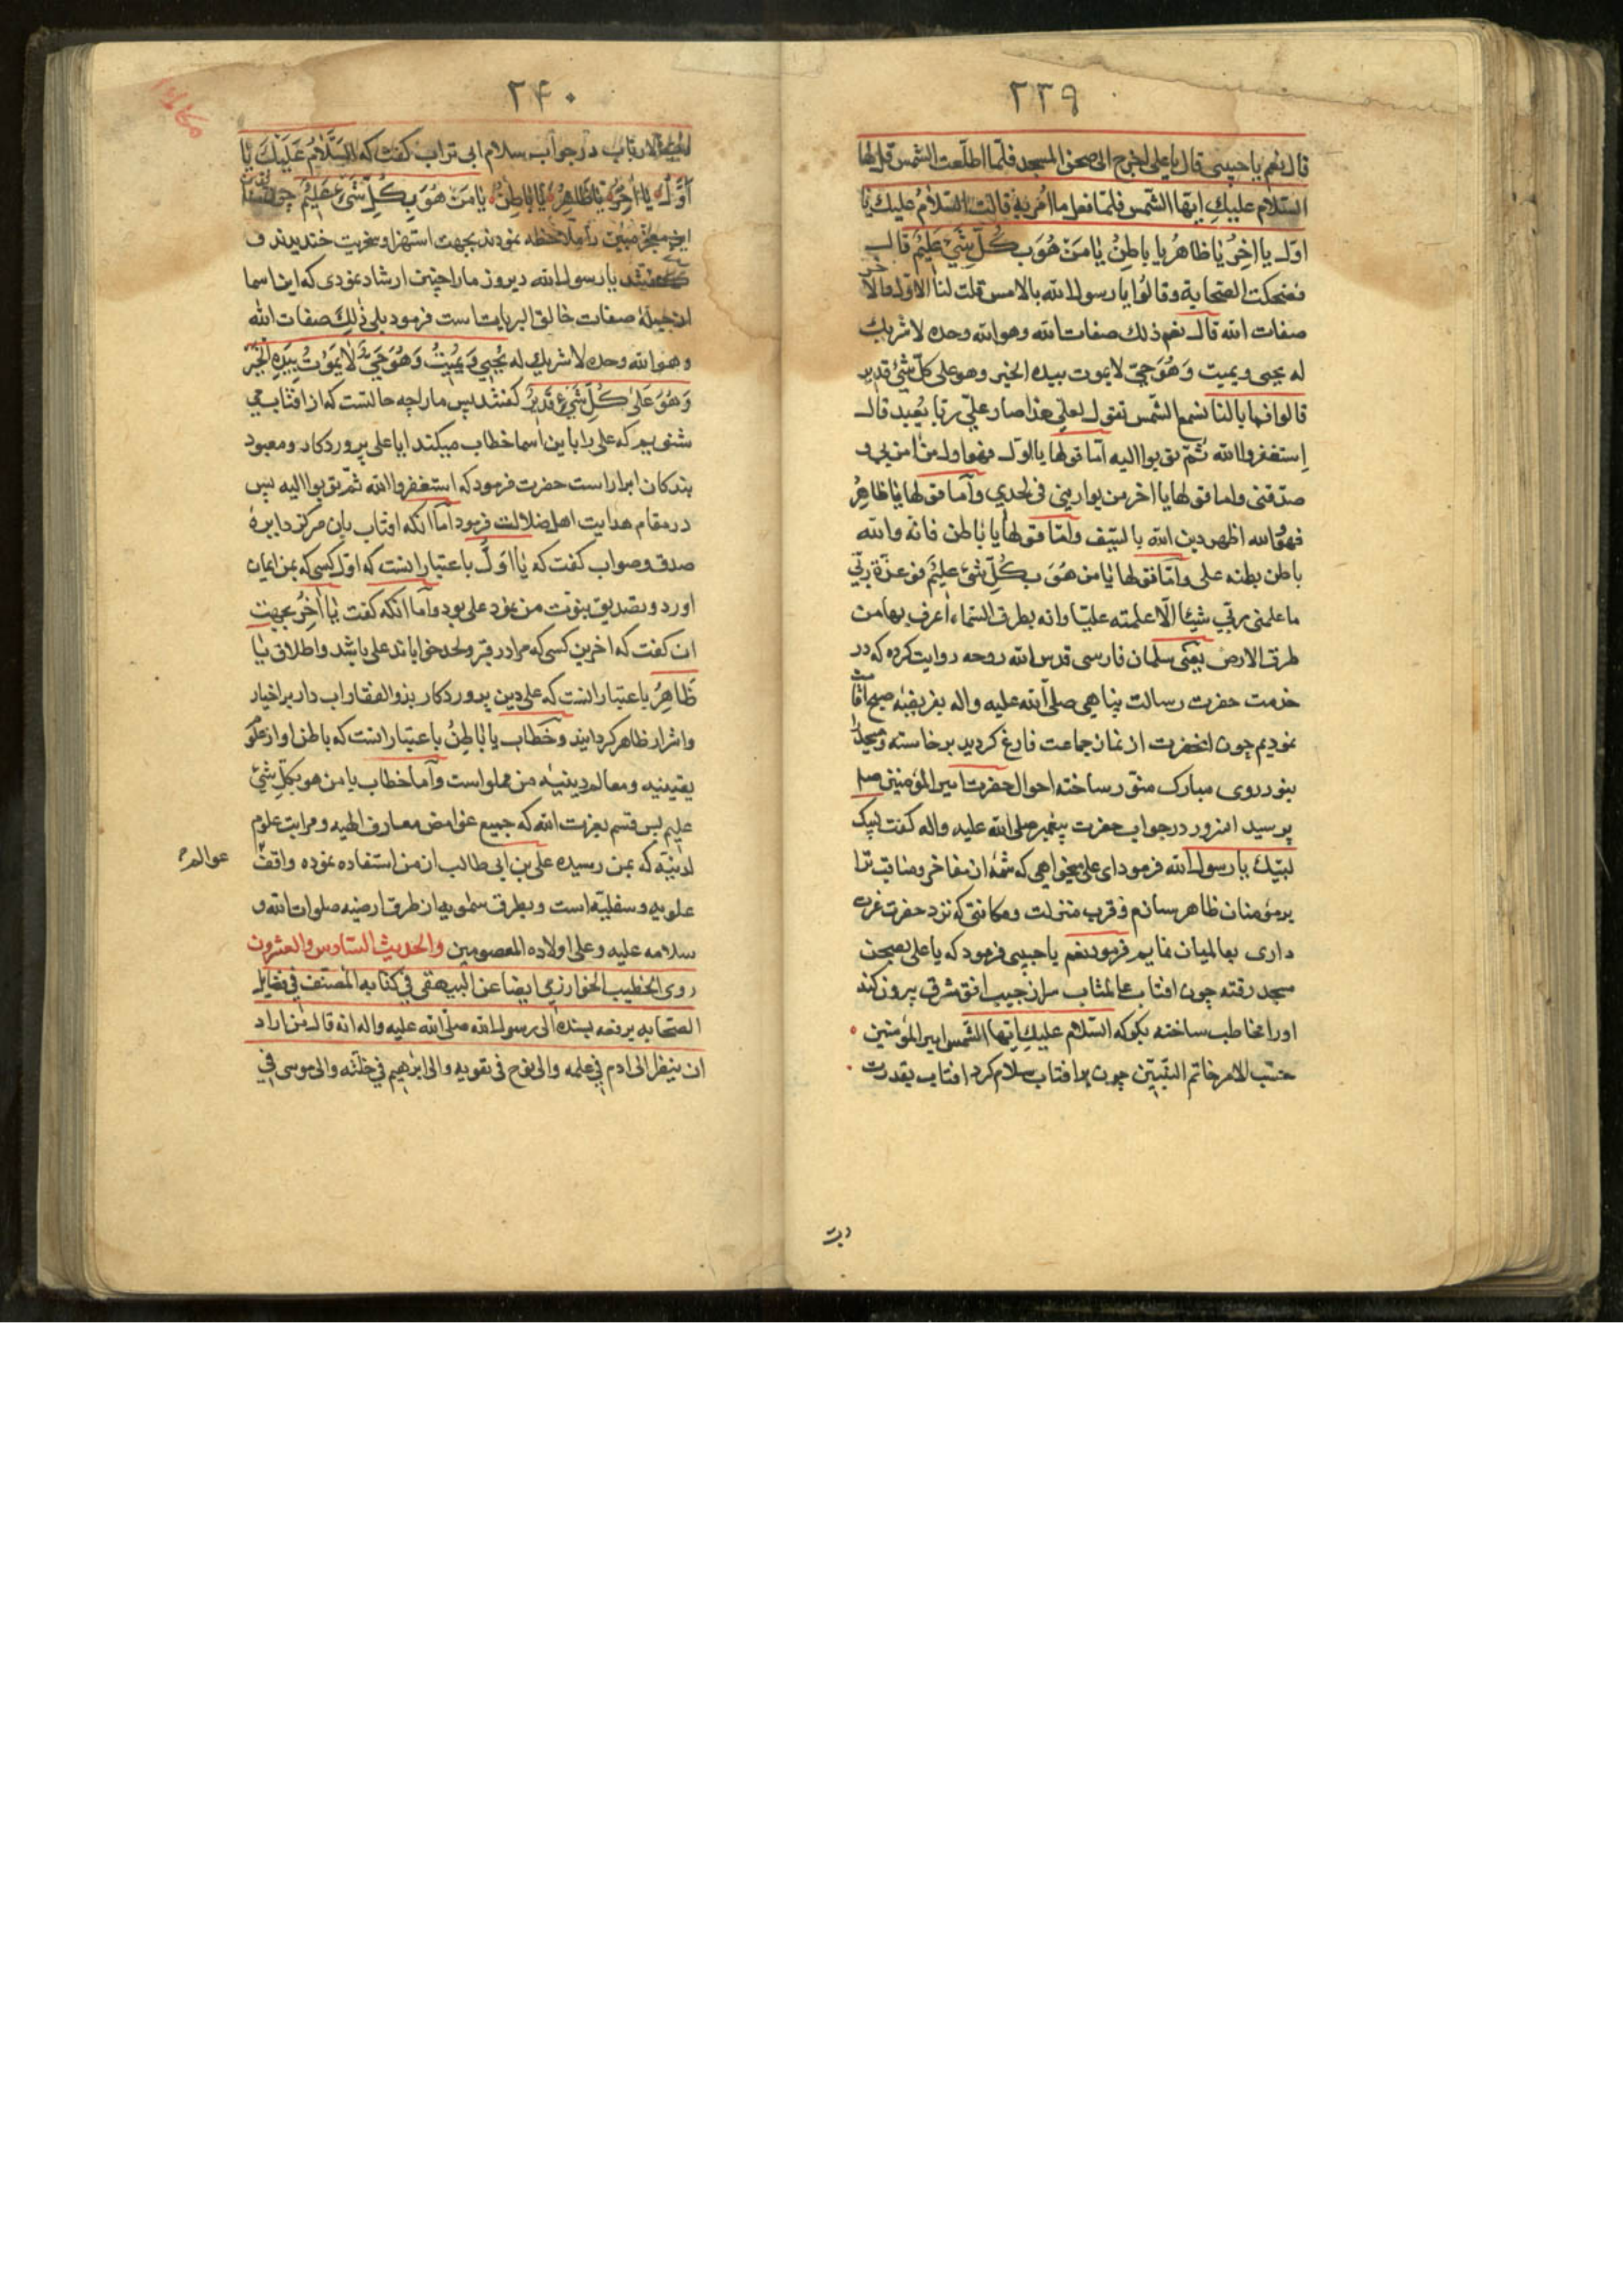 ۲۳۹
قال نعم یا حبیبی قال یا علی اخرج الی صحن المسجد فلما اطلعت الشمس قل لها
السّلام علیكِ ایتها الشّمس فلمّا فعل ما اُمر به قالت السّلامُ علیك یا
اوّل یا اخِرُ یٰا ظاهرُ یا باطِنُ یٰا مَنْ هُوَ بِكُلِّ شَیْءٍ عَلیمٌ قال
فضحکت الصّحابة وقالُوا یا رسول الله بالامس قلت لنا الاوّل والاٰخر
صفات الله قال نعم ذلك صفات الله وهو الله وحده لا شریك
له یحیی ویمیت وَهُوَ حیّ لا یموت بیده الخیر وهو علی کلّ شیٔ قدیر
قالوا فما بالنا نسمع الشّمس تقول لعلی هذا صار علیّ ربّا یُعبد قال
اِستغفروا الله ثُمّ توبوا الیه اَمّا قولها یا اَوّل فهو اول من اٰمن بی و
صدّقنی واما قولها یا اخر من یوارینی فی لحدی واَمّا قولها یا ظاهِرُ
فهو والله اظهر دین الله بالسّیف واَمّا قولها یا باطن فانه والله
باطن بطنه علمی واَمّا قولها یٰا من هُوَ بِكُلِّ شیٔ علیمٌ فو عزّة ربّی
ما علمنی ربّی شیئا الّا علمته علیّا وانه بطرق السّماء اعرف بها من
طرق الارض یعنی سلمان فارسی قدس الله روحه روایت کرده که در
خدمت حضرت رسالت پناهی صلّی الله علیه واله بفریضه صبح اقامت
نمودیم چون انحضرت از نماز جماعت فارغ گردید برخاسته ومسجد را
بنور روی مبارک منوّر ساخته احوال حضرت امیر المؤمنین صلم
پرسید امزور در جواب حضرت پیغمبر صلی الله علیه واله گفت لبیک
لبّیك یا رسول الله فرمود ای علی میخواهی که شمّهٔ از مفاخر ومناقب ترا
بر مؤمنان ظاهر سازم وقرب منزلت ومکانتی که نزد حضرت عزت
داری بعالمیان نمایم فرمود نعم یا حبیبی فرمود که یا علی بصحن
مسجد رفته چون افتاب عالمتاب سر از جیب افق شرقی بیرون کند
اورا مخاطب ساخته بگو که السّلام علیكِ ایتها الشّمس امیر المؤمنین
حسَب الامر خاتم النبیّین چون بر افتاب سلام کرد افتاب بقدرت
۲۴۰
الارباب در جواب سلام ابی تراب گفت که السَّلٰامُ عَلَیْكَ یٰا
اَوَّلُ یٰا اٰخِرُ یٰا ظَاهِرُ یٰا بَاطِنُ یٰا مَنْ هُوَ بِكُلِّ شَیْءٍ عَلیمٌ چون
این معجز مبین را ملاحظه نمودند بجهت استهزا وسخریت خندیدند و
گفتند یا رسول الله دیروز ما را چنین ارشاد نمودی که این اسما
از جملهٔ صفات خالق البریات است فرمود بلی ذٰلِكَ صفات الله
وهو الله وحده لا شریك له یُحْیِی وَیُمیتُ وَهُوَ حَیٌّ لٰا یَمُوتُ بِیَدِهِ الْخَیْرُ
وَهُوَ عَلٰی كُلِّ شَیْءٍ قَدیرٌ گفتند پس ما را چه حالتست که از افتاب می
شنویم که علی را باین اسما خطاب میکند ایا علی پروردکار ومعبود
بندکان ابرار است حضرت فرمود که استغفروا الله ثمّ توبوا الیه پس
در مقام هدایت اهل ضلالت فرمود اَمّا انکه افتاب بان مرکز دایرهٔ
صدق وصواب گفت که یا اَوّلُ باعتبار انست که اوّل کسی که بمن ایمان
اورد وتصدیق بنوّت من نمود علی بود واَمّا انکه گفت یٰا اٰخِرُ بجهت
ان گفت که اخرین کسی که مرا در قبر ولحد خواباند علی باشد واطلاق یٰا
ظَاهِرُ باعتبار انست که علی دین پروردکار بذو الفقار ابدار بر اخیار
واشرار ظاهر گردانید وخطاب یا بَاطِنُ باعتبار انست که باطن او از علوم
یقینیه ومعالم دینیّه من مملو است واَمّا خطاب یا من هو بکلّ شیٔ
علیم پس قسم بعزت الله که جمیع غوامض معارف الهیه ومراتب علوم
لدنیّه که بمن رسیده علی بن ابی طالب از من استفاده نموده واقف
عوالم
علویه وسفلیّه است وبطرق سمٰویه از طرق ارضیه صلوات الله و
سلامه علیه وعلی اولاده المعصومین والحدیث السّادس والعشرون
روی الخطیب الخوارزمی ایضا عن البیهقی فی کتابه المصنّف فی فضایل
الصّحابه یرفعه بسنده الی رسول الله صلّی الله علیه واله انه قال من اراد
ان ینظر الی ادم فی علمه والی نوح فی تقویه والی ابرٰهیم فی خلّته والی موسی فی